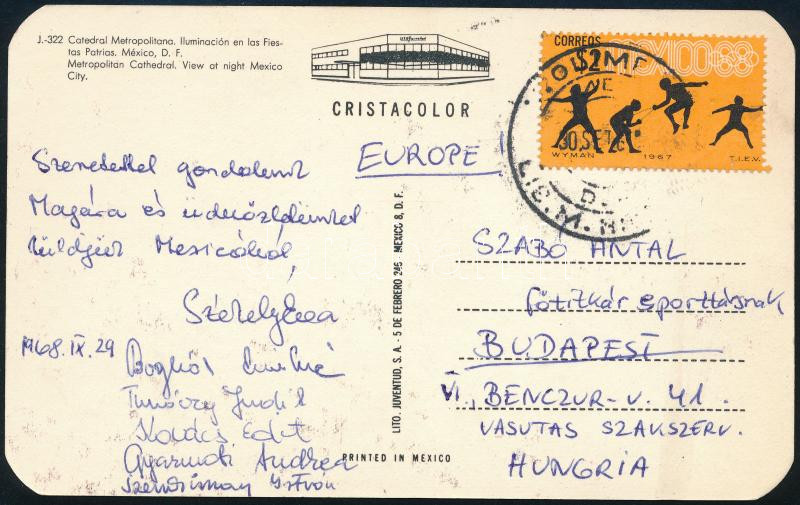 J.-322 Catedral Metropolitana. Iluminación en las Fies-
tas Patrias. México, D. F.
Metropolitan Cathedral. View at night Mexico
City.
CRISTACOLOR
CORREOS
$2 MEXICO68
WYMAN 1967 T.I.E.V.
30.SET.
EUROPE
Szeretettel gondolunk
Magára és üdvözletünket
küldjük Mexicóból,
Széchelyi Éva
1968.IX.29
Judit
Kovács Edit
Gyarmati Andrea
Szentirmay István
LITO. JUVENTUD, S. A. - 5 DE FEBRERO 246 MEXICO 8, D. F.
PRINTED IN MEXICO
SZABÓ ANTAL
főtitkár sporttársnak
BUDAPEST
VI., BENCZUR-U. 41.
VASUTAS SZAKSZERV.
HUNGRIA